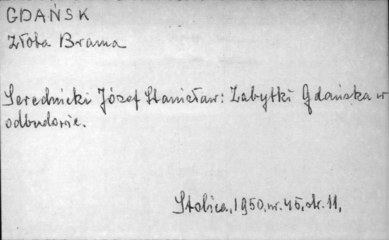 GDAŃSK
Złota Brama
Serednicki Józef Stanisław: Zabytki Gdańska w
odbudowie.
Stolica, 1950, nr. 45, str. 11,